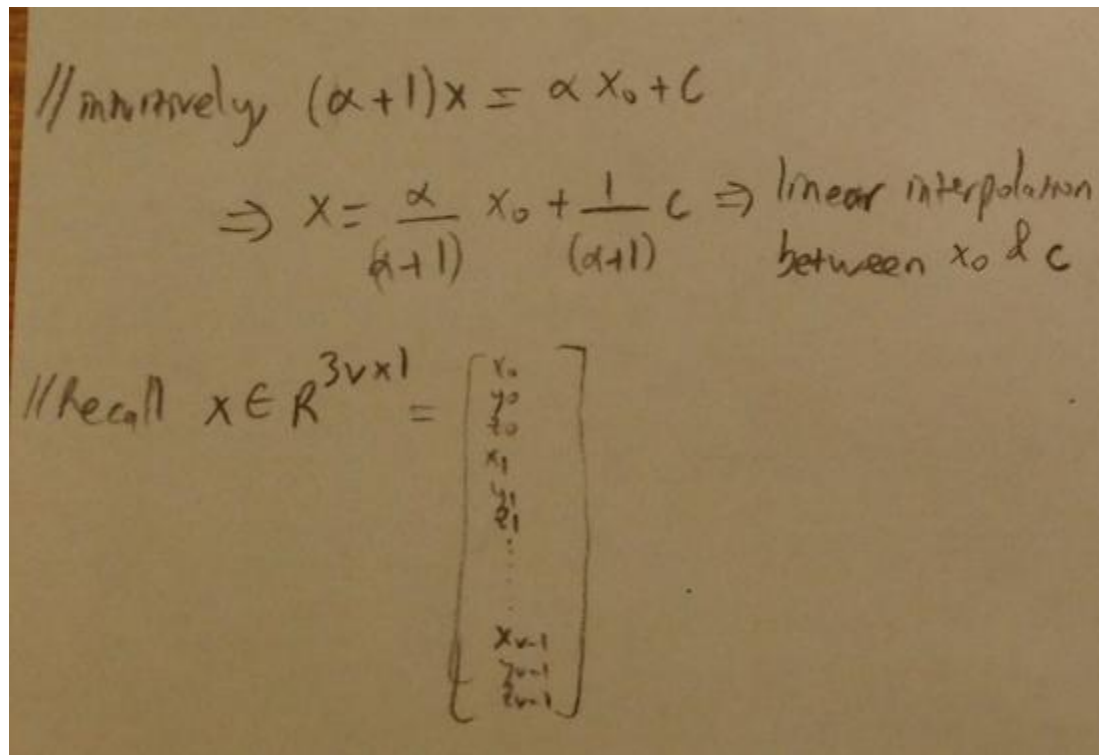 //intuitively, (α+1)x = α x₀ + c
⇒ x = α/(α+1) x₀ + 1/(α+1) c ⇒ linear interpolation
between x₀ & c
//Recall x ∈ R^{3v×1} = [
x₀
y₀
z₀
x₁
y₁
z₁
⋮
x_{v-1}
y_{v-1}
z_{v-1}
]